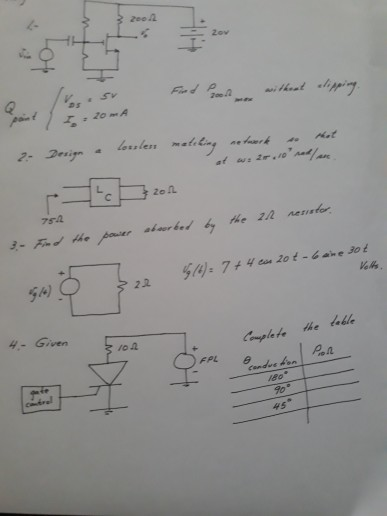 1.-
200Ω
Vo
20V
Vin
Q point
V_DS = 5V
I_D = 20 mA
Find P_200Ω max without clipping.
2.- Design a lossless matching network so that
at ω = 2π×10⁷ rad/sec.
L
C
20Ω
75Ω
3.- Find the power absorbed by the 2Ω resistor.
Vg(t)
2Ω
Vg(t) = 7 + 4 cos 20t - 6 sine 30t
Volts.
4.- Given
10Ω
FPL
gate
control
Complete the table
θ conduction
P10Ω
180°
90°
45°